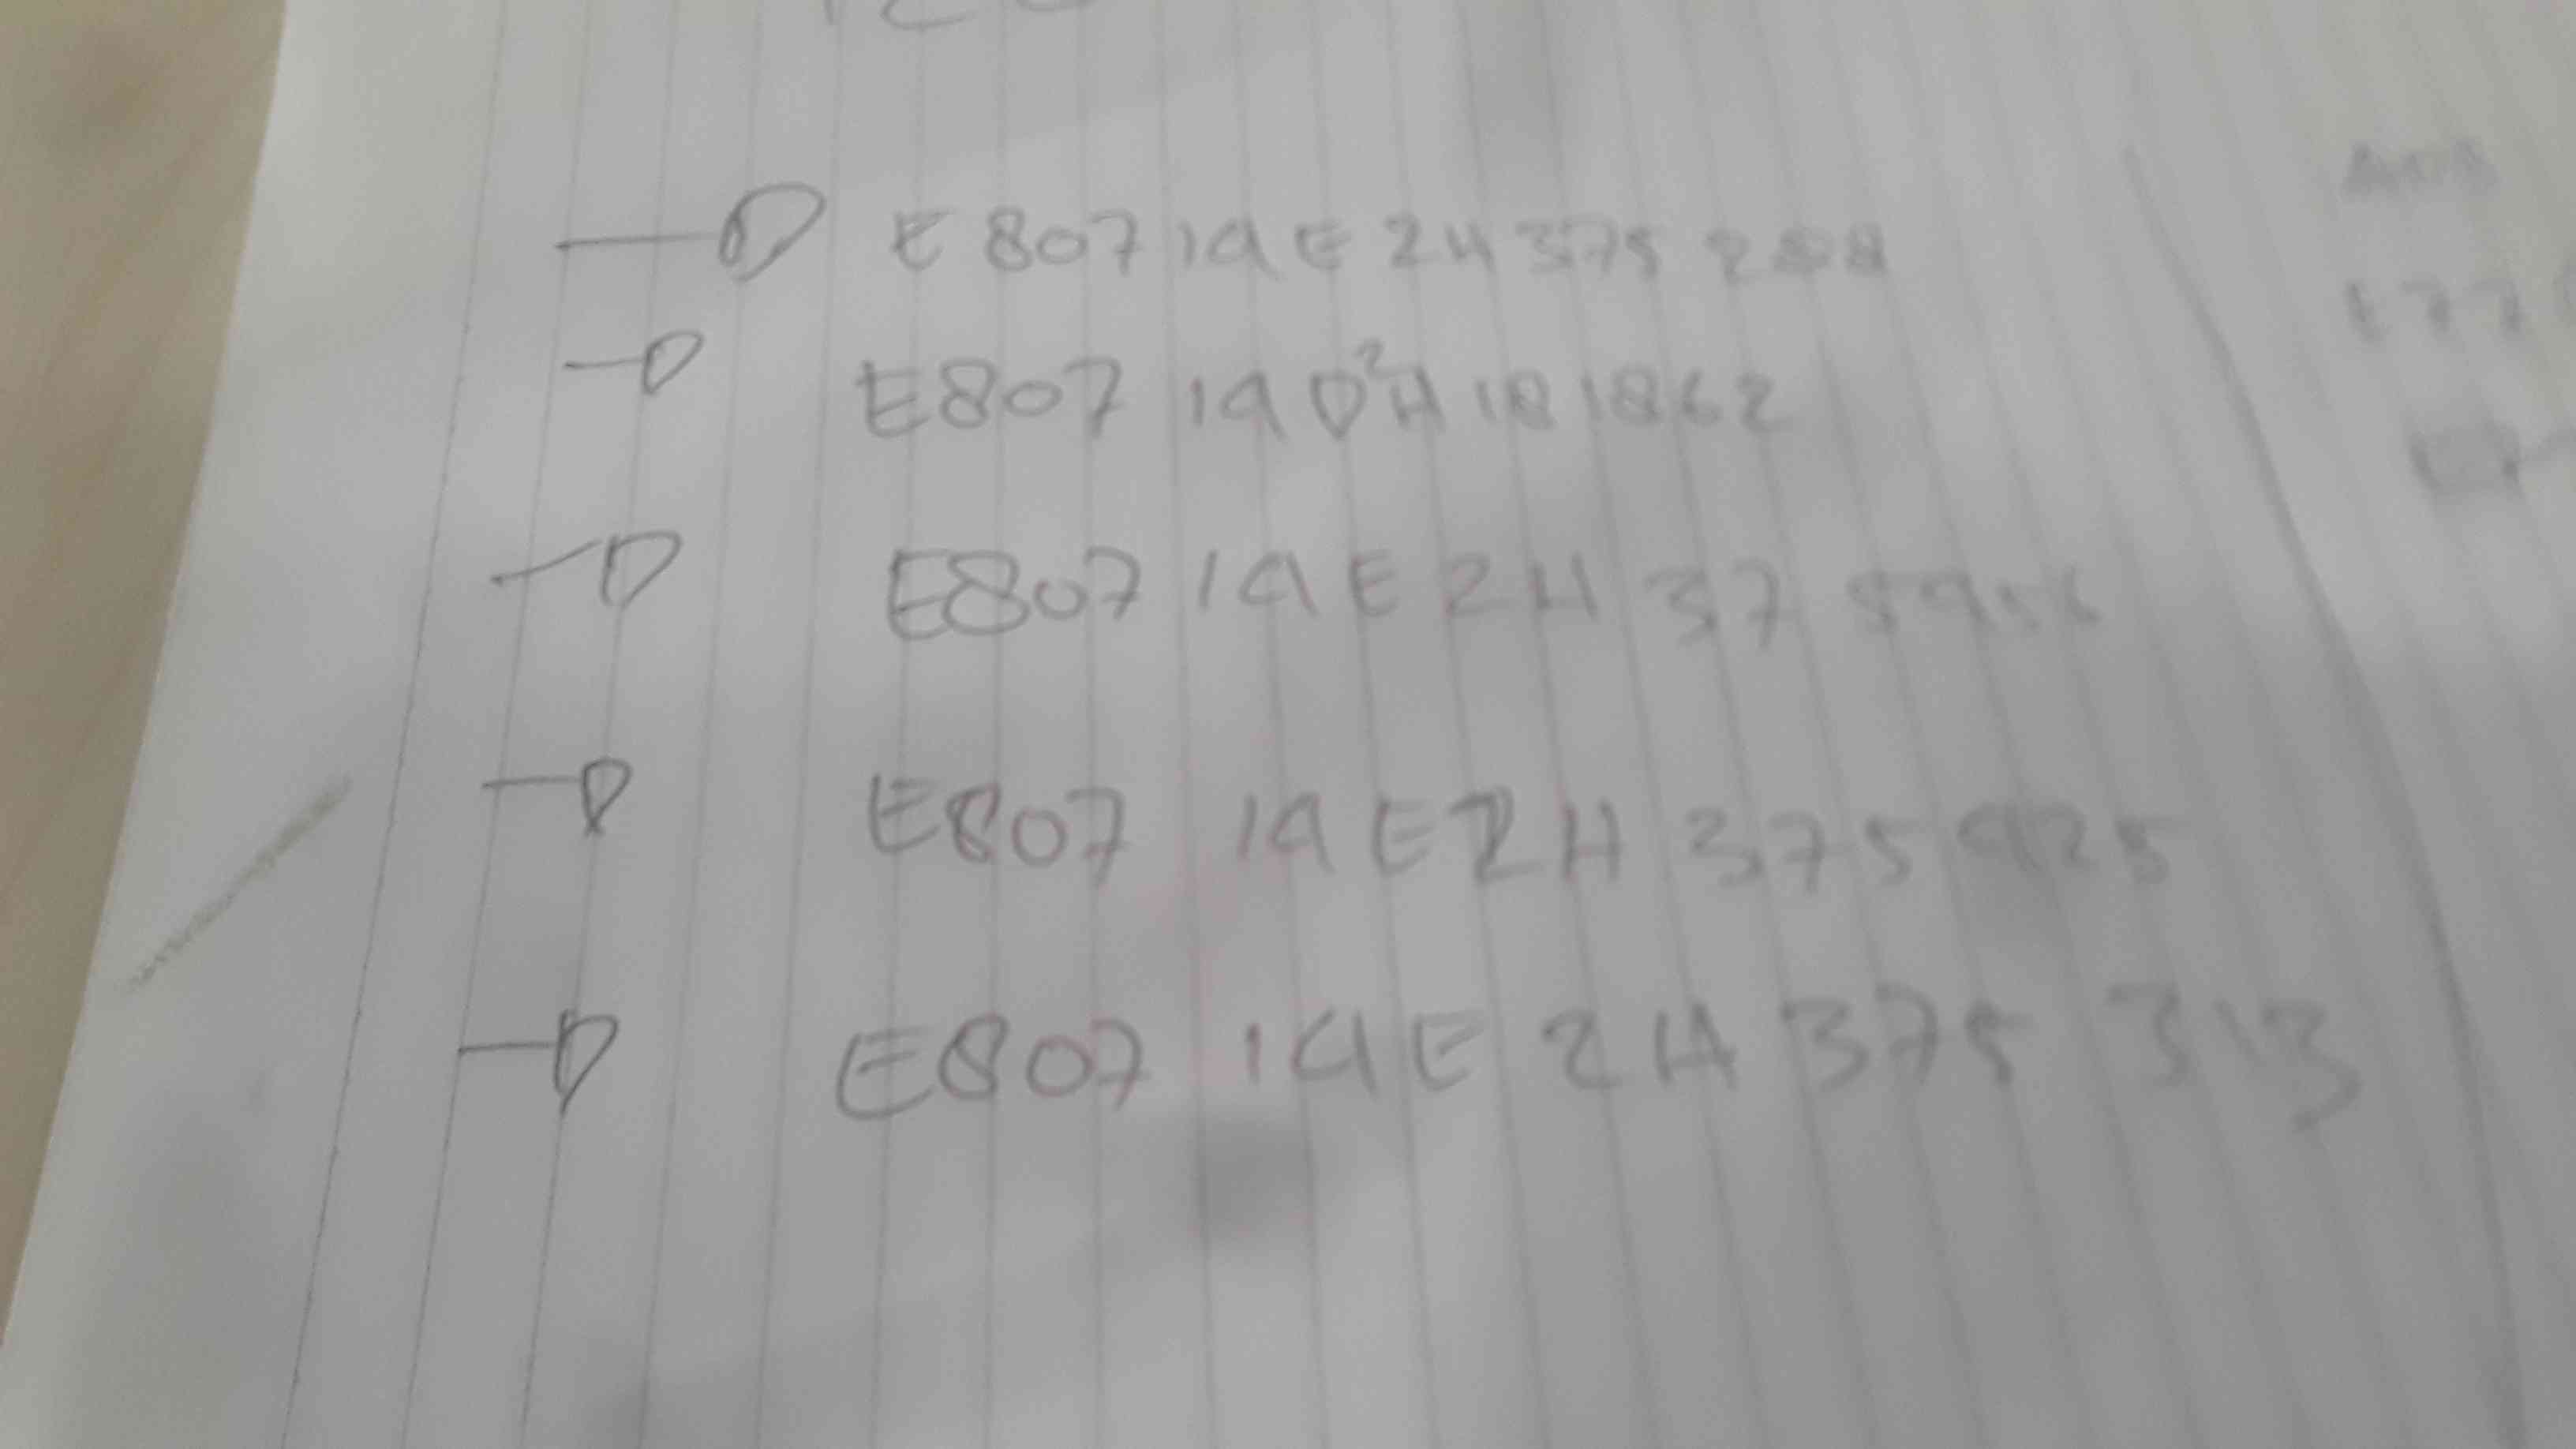 E807 19 E 2H 375 288
E807 19 D2H 181862
E807 19 E 2H 37 5956
E807 19 E2H 375925
E807 19 E 2H 375 313